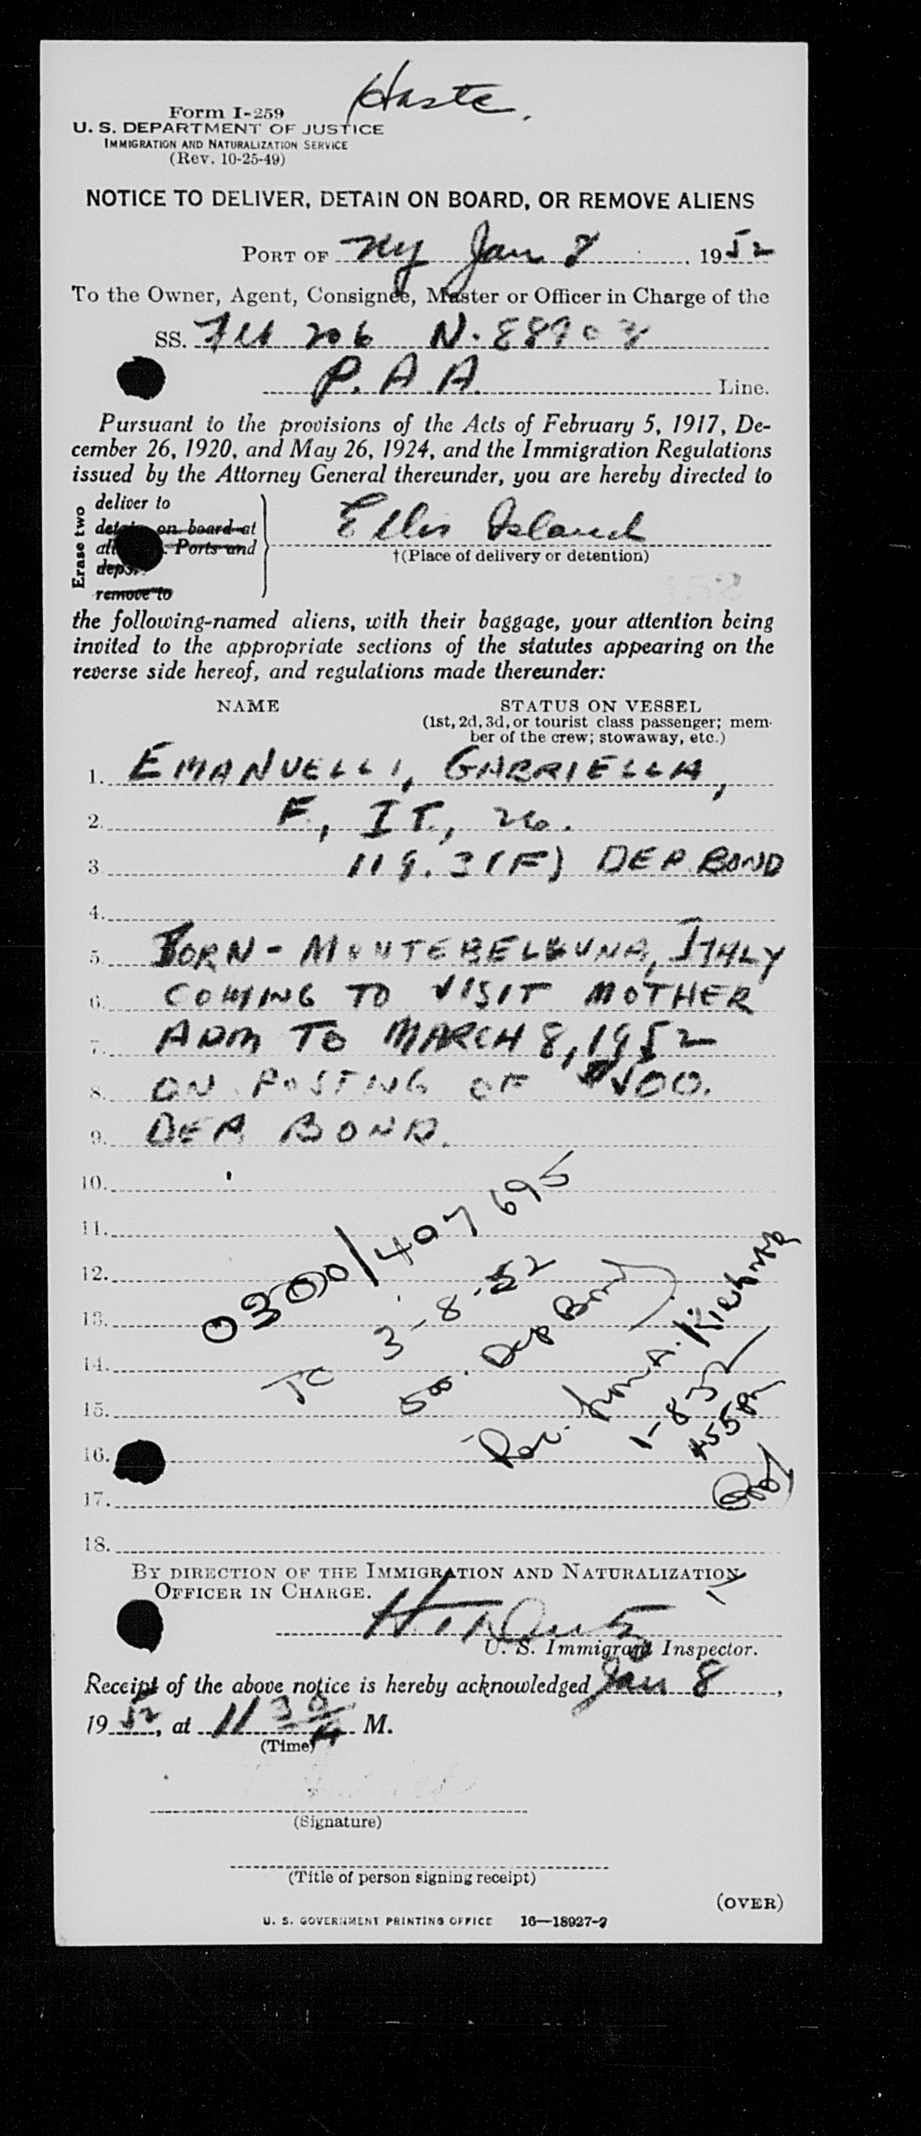 Haste.
Form I-259
U. S. DEPARTMENT OF JUSTICE
IMMIGRATION AND NATURALIZATION SERVICE
(Rev. 10-25-49)
NOTICE TO DELIVER, DETAIN ON BOARD, OR REMOVE ALIENS
PORT OF NY Jan 8, 1952
To the Owner, Agent, Consignee, Master or Officer in Charge of the
SS. 206 N.
P. A. A. Line.
Pursuant to the provisions of the Acts of February 5, 1917, De-
cember 26, 1920, and May 26, 1924, and the Immigration Regulations
issued by the Attorney General thereunder, you are hereby directed to
Erase two
deliver to
on board at
Ports and
remove to
Ellis Island
†(Place of delivery or detention)
the following-named aliens, with their baggage, your attention being
invited to the appropriate sections of the statutes appearing on the
reverse side hereof, and regulations made thereunder:
NAME STATUS ON VESSEL
(1st, 2d, 3d, or tourist class passenger; mem-
ber of the crew; stowaway, etc.)
1. EMANUELLI, GABRIELLA,
2. F, IT., 26.
3 119.3(F) DEP. BOND
4.
5. BORN - MONTEBELLUNA, ITALY
6. COMING TO VISIT MOTHER
7. ADM TO MARCH 8, 1952
8. ON POSTING OF $500.
9. DEP. BOND.
10.
11. 0300/407695
12.
13. TC 3-8-52
14. 500. Dep Bond
15. Rec. from A.
16. 1-8-52
17. 455 PM
18.
BY DIRECTION OF THE IMMIGRATION AND NATURALIZATION
OFFICER IN CHARGE.
U. S. Immigrant Inspector.
Receipt of the above notice is hereby acknowledged Jan 8,
1952, at 11 30 A M.
(Time)
(Signature)
(Title of person signing receipt)
(OVER)
U. S. GOVERNMENT PRINTING OFFICE 16—18927-2